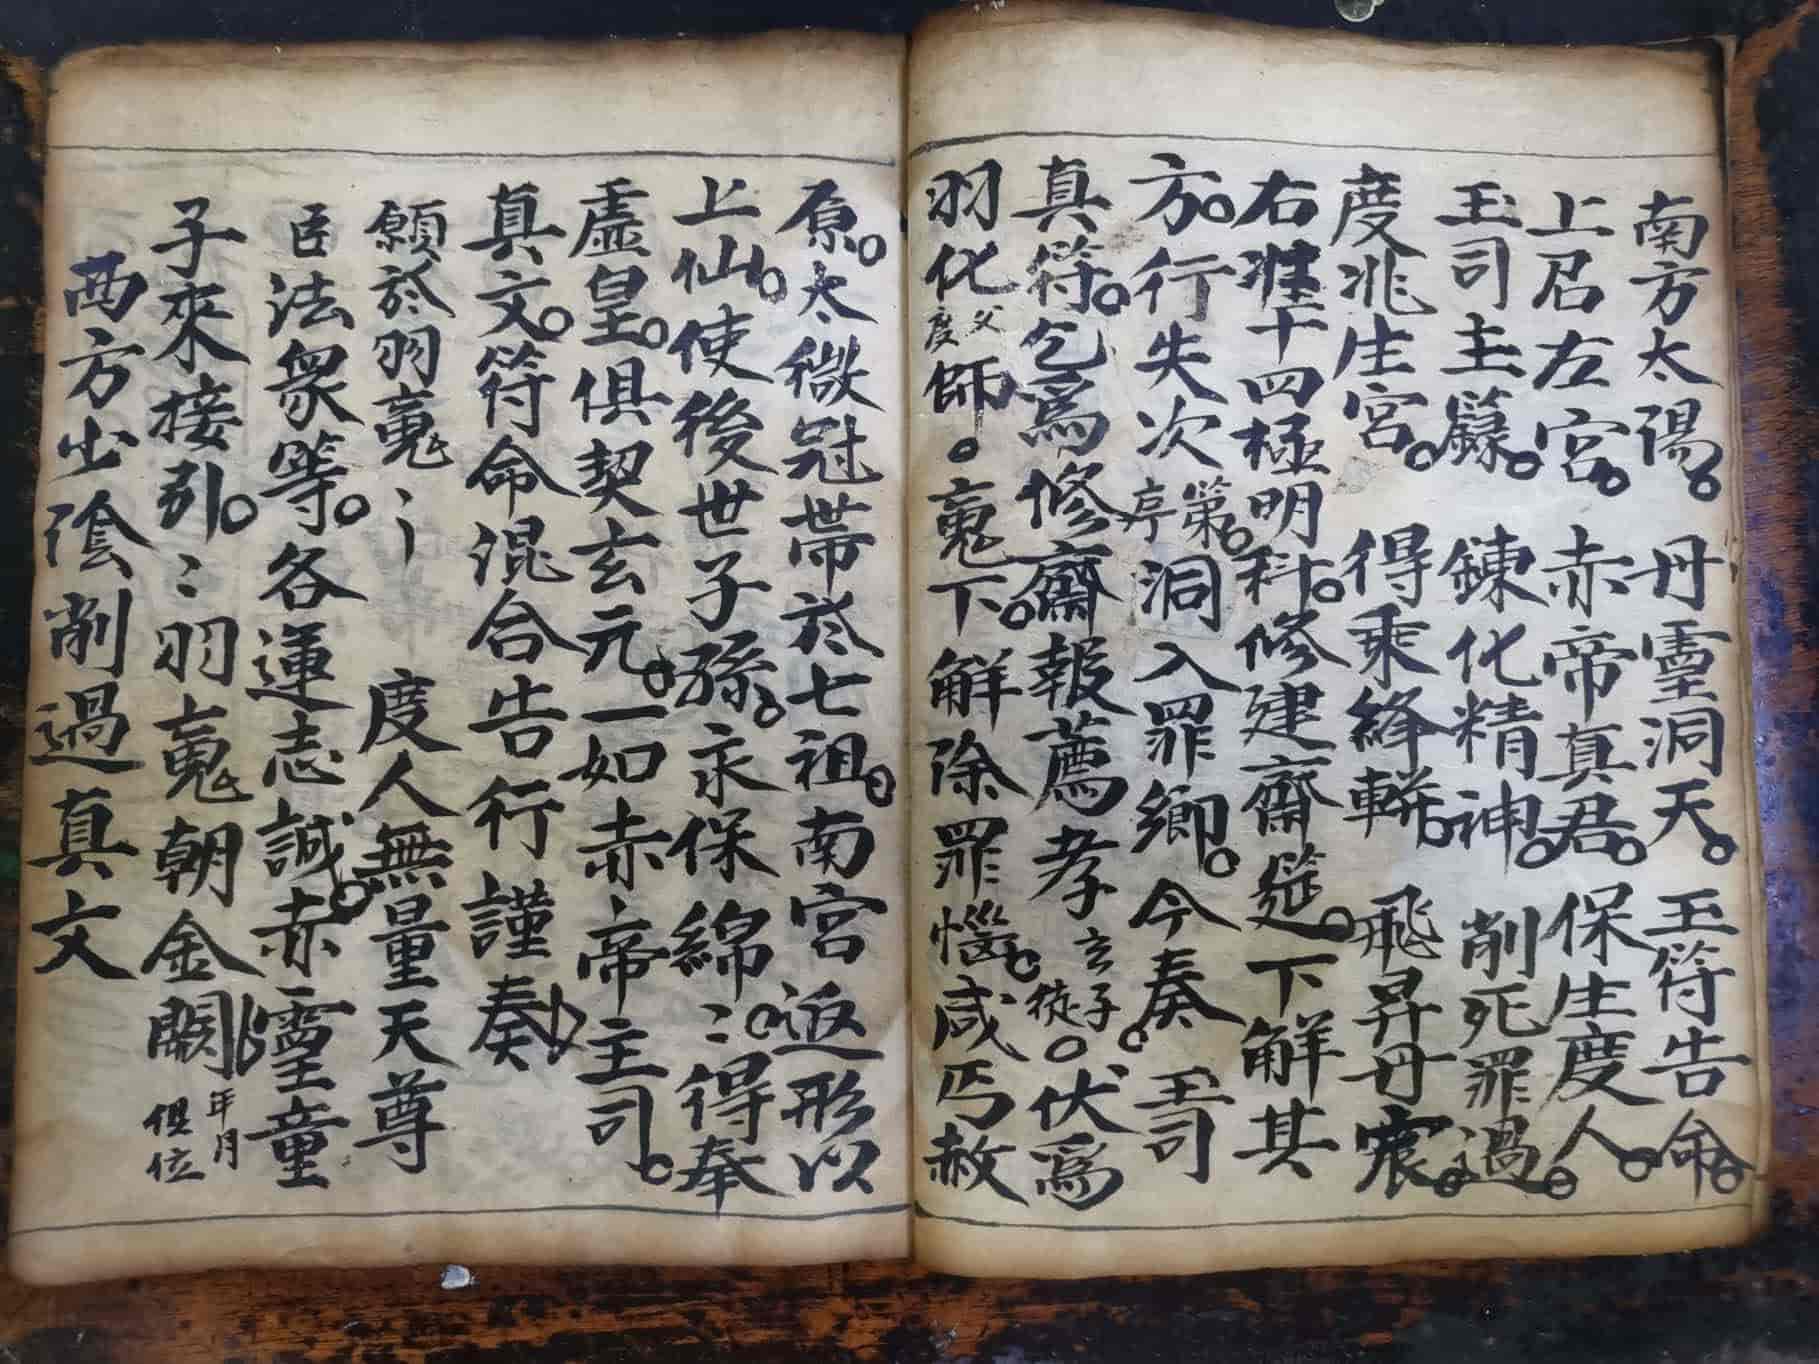 南方太陽。丹靈洞天。玉符告命。
上召左宮。赤帝真君。保生度人。
玉司主籙。鍊化精神。削死罪過。
度兆生宮。得乘絳軿。飛昇丹宸。
右准十四極明科。修建齋筵。下解其
方。行失次第。序洞入罪鄉。今奏玉司
真符。乞為修齋報薦孝玄子徒。伏為
羽化父度師。䰟下。解除罪惱。咸丐赦
原。太微冠帶於七祖。南宮返形以
上仙。使後世子孫。永保綿綿。得奉
虛皇。俱契玄元。一如赤帝主司。
真文。符命混合告行謹奏
願於羽䰟 度人無量天尊
臣法眾等。各運志誠。赤靈童
子來接引。羽䰟朝金闕年月俱位
西方出陰削過真文